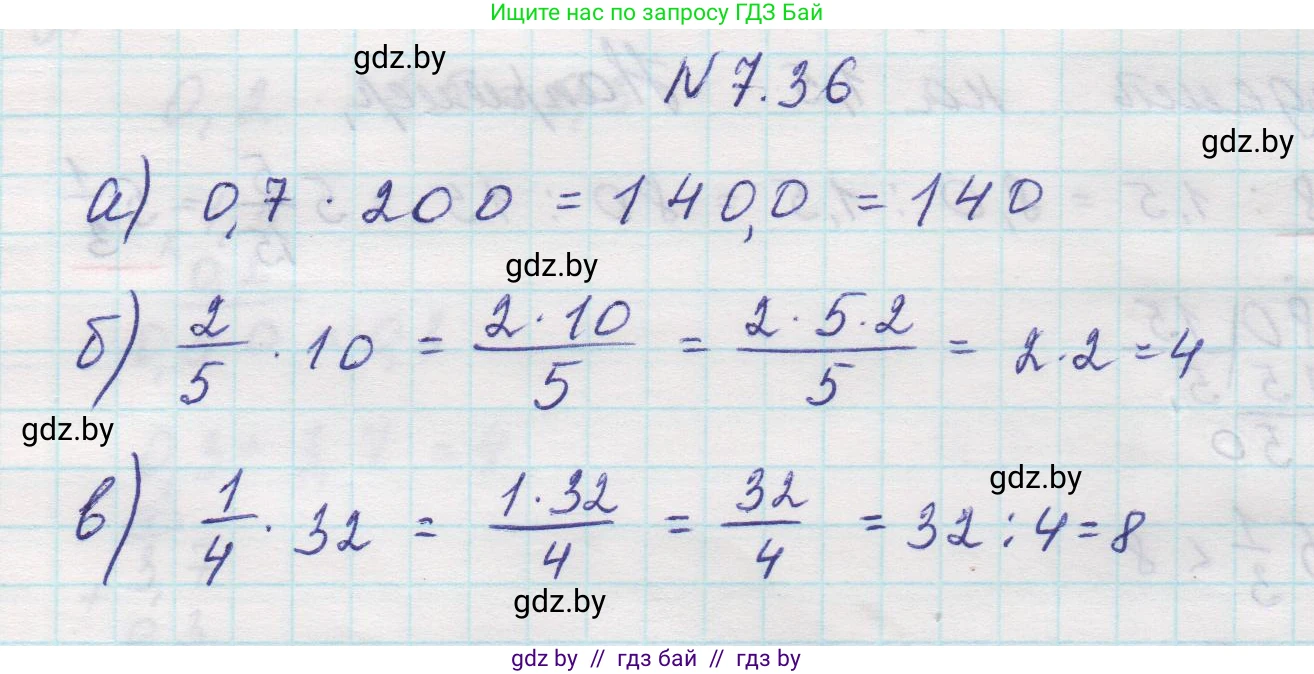 Ищите нас по запросу ГДЗ Бай
gdz.by
N 7.36
gdz.by
а) 0,7 · 200 = 140,0 = 140
gdz.by
б) 2/5 · 10 = 2·10/5 = 2·5·2/5 = 2·2 = 4
gdz.by
в) 1/4 · 32 = 1·32/4 = 32/4 = 32 : 4 = 8
gdz.by
gdz.by
gdz by // гдз бай // гдз by